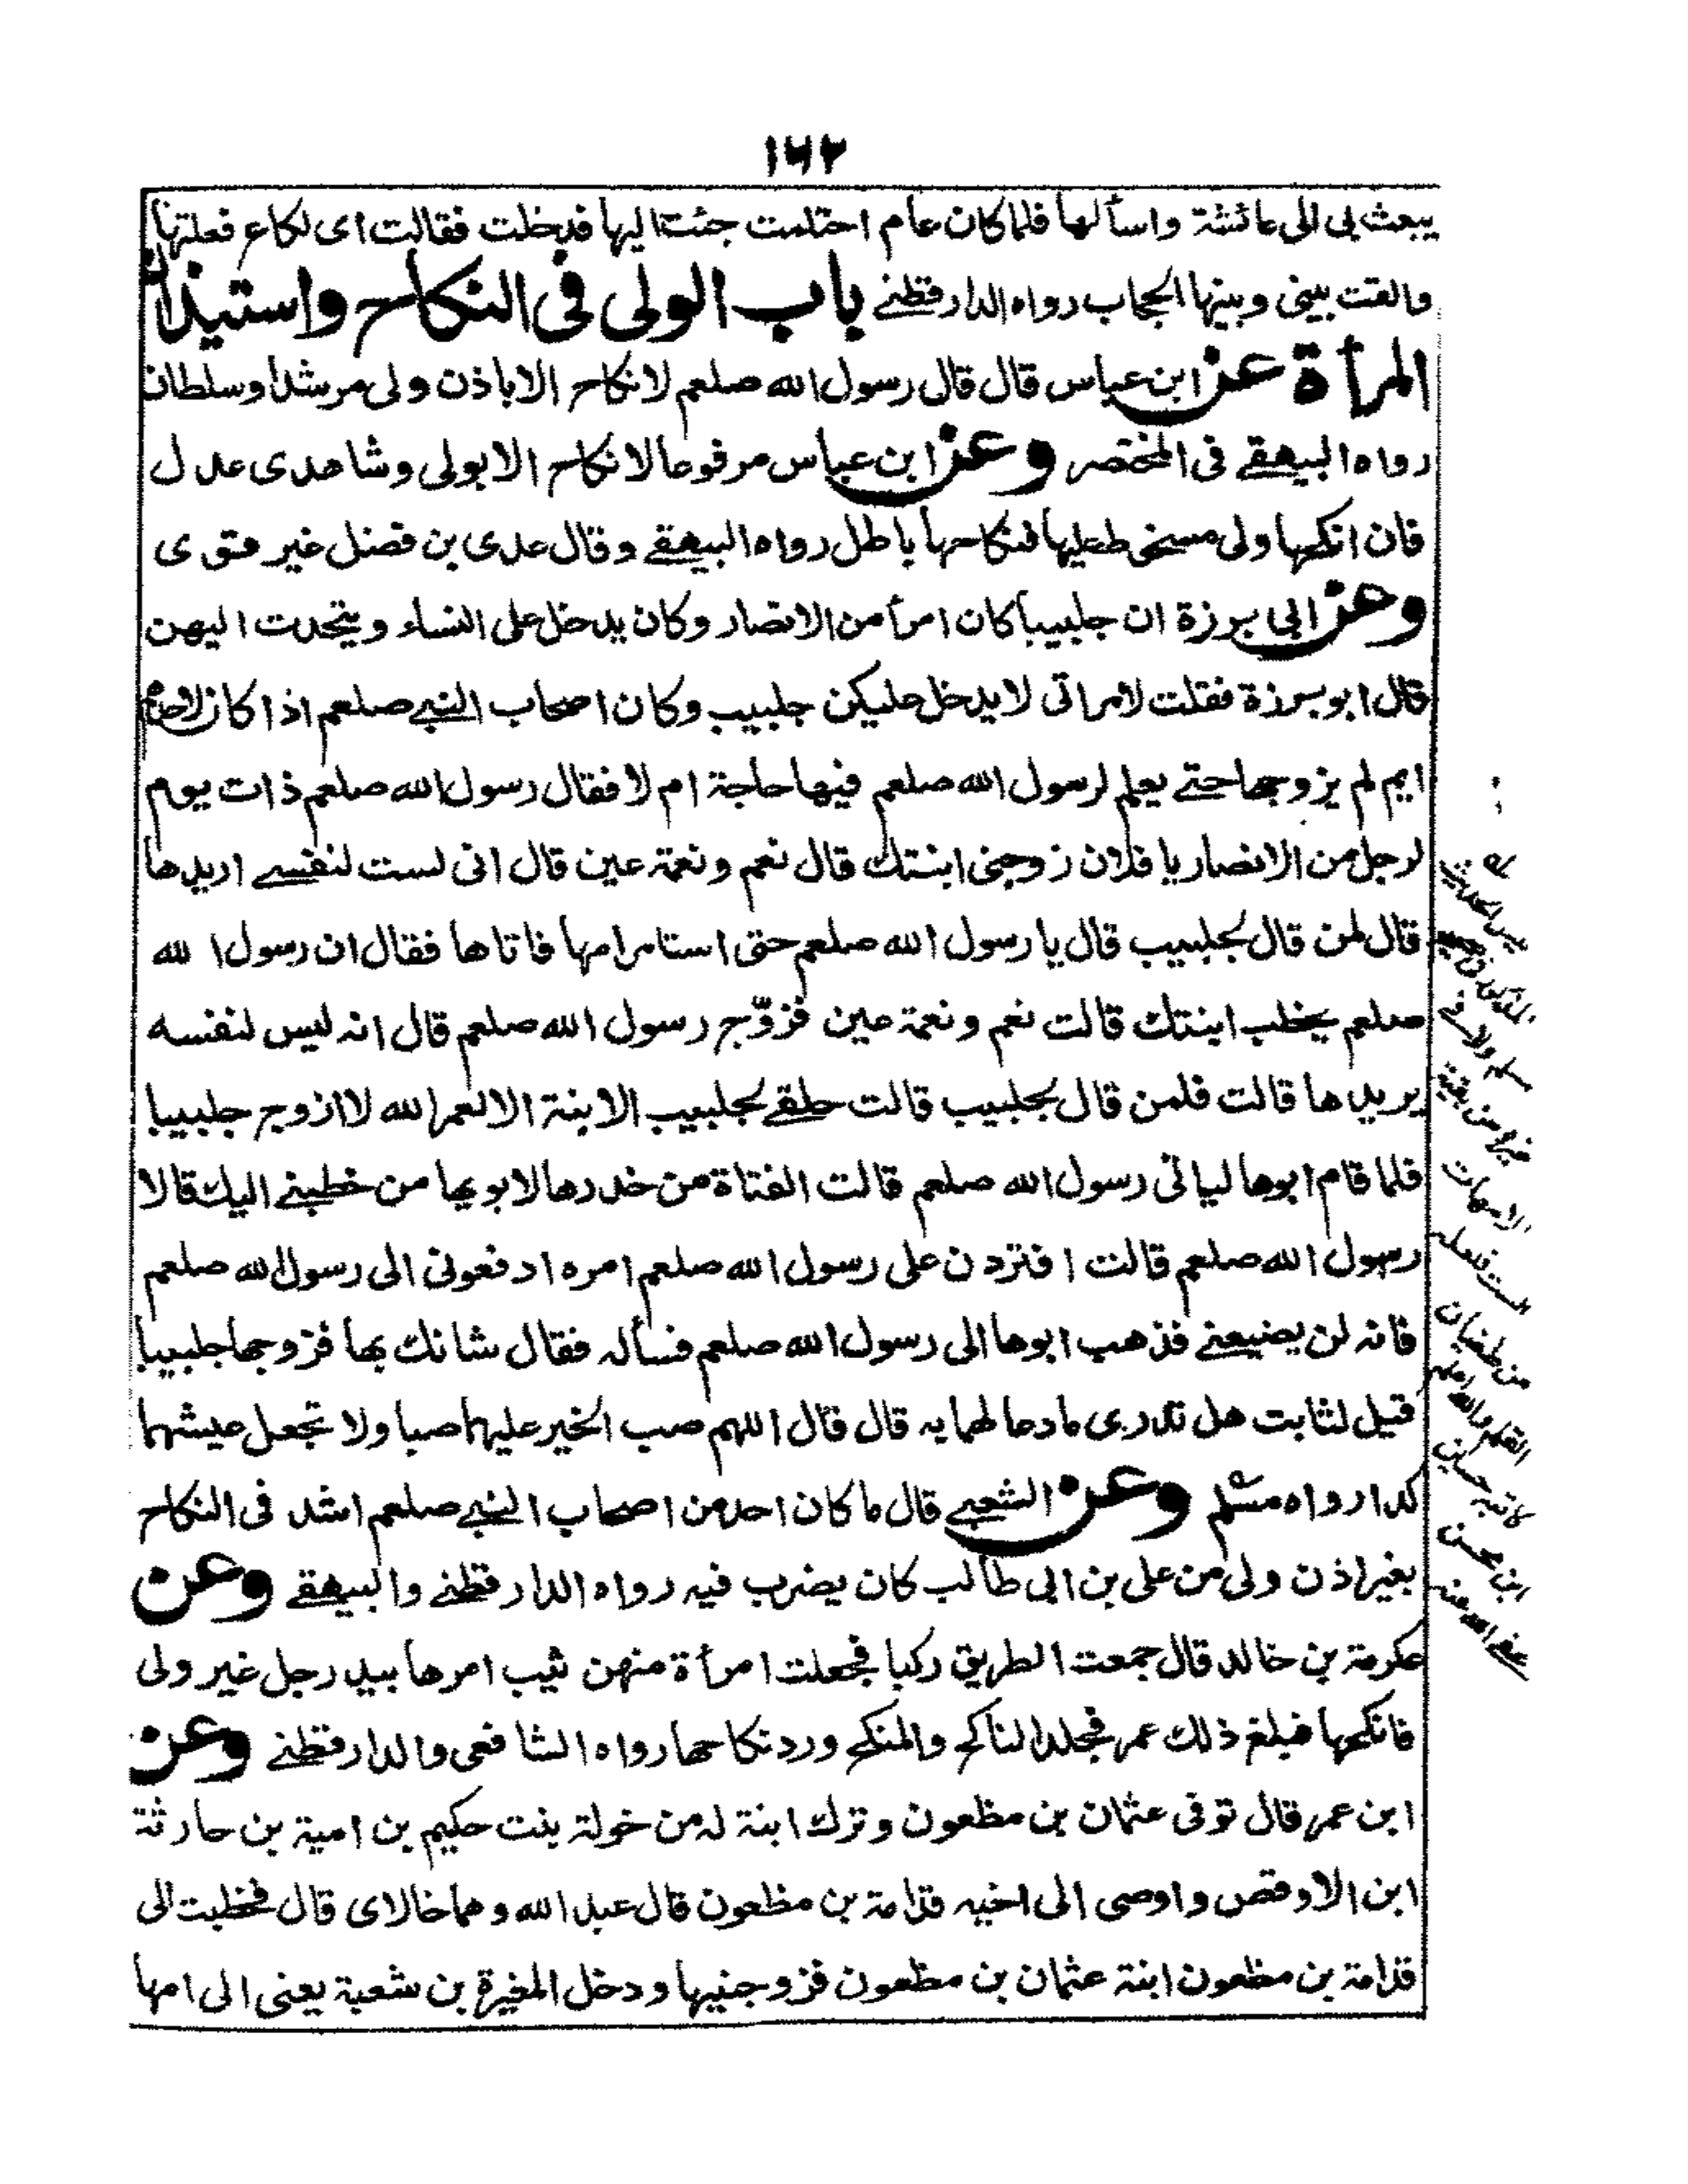 ١٦٢
يبعث بى الى عائشة واسألها فلما كان عام احتلمت جئت اليها فدخلت فقالت اى لكاع فعلتها
والقت بينى وبينها الحجاب رواه الدارقطنے باب الولى فى النكاح واستيذان
المرأة عن ابن عباس قال قال رسول الله صلعم لا نكاح الا باذن ولى مرشد او سلطان
رواه البيهقے فى المختصر وعن ابن عباس مرفوعا لا نكاح الا بولى وشاهدى عدل
فان انكحها ولى مسخوط عليها فنكاحها باطل رواه البيهقے وقال عدى بن فضل غير قوى
وعن ابى برزة ان جليبيبا كان امرأ من الانصار وكان يدخل على النساء ويتحدث اليهن
قال ابو برزة فقلت لامراتى لا يدخل عليكن جلبيب وكان اصحاب النبے صلعم اذا كان لاحدهم
ايم لم يزوجها حتے يعلم لرسول الله صلعم فيها حاجة ام لا فقال رسول الله صلعم ذات يوم
لرجل من الانصار يا فلان زوجنى ابنتك قال نعم ونعمة عين قال انى لست لنفسے اريدها
قال لمن قال لجلبيب قال يا رسول الله صلعم حتى استامر امها فاتاها فقال ان رسول الله
صلعم يخطب ابنتك قالت نعم ونعمة عين فزوّج رسول الله صلعم قال انه ليس لنفسه
يريدها قالت فلمن قال بجلبيب قالت حلقے لجلبيب الابنة الا لعمر الله لا ازوج جلبيبا
فلما قام ابوها لياتى رسول الله صلعم قالت الفتاة من خدرها لابويها من خطبنے اليك قالا
رسول الله صلعم قالت افتردن على رسول الله صلعم امره ادفعونى الى رسول الله صلعم
فانه لن يضيعنے فذهب ابوها الى رسول الله صلعم فسأله فقال شانك بها فزوجها جلبيبا
قيل لثابت هل تدرى ما دعا لهما به قال قال اللهم صب الخير عليهما صبا ولا تجعل عيشهما
كدا رواه مسلم وعن الشعبے قال ما كان احد من اصحاب النبے صلعم اشد فى النكاح
بغير اذن ولى من على بن ابى طالب كان يضرب فيه رواه الدارقطنے والبيهقے وعن
عكرمة بن خالد قال جمعت الطريق ركبا فجعلت امرأة منهن ثيب امرها بيد رجل غير ولى
فانكحها فبلغ ذلك عمر فجلد الناكح والمنكح ورد نكاحها رواه الشافعى والدارقطنے وعن
ابن عمر قال توفى عثمان بن مظعون وترك ابنة له من خولة بنت حكيم بن امية بن حارثة
ابن الاوقص واوصى الى اخيه قدامة بن مظعون قال عبد الله وهما خالاى قال فخطبت الى
قدامة بن مظعون ابنة عثمان بن مظعون فزوجنيها ودخل المغيرة بن شعبة يعنى الى امها